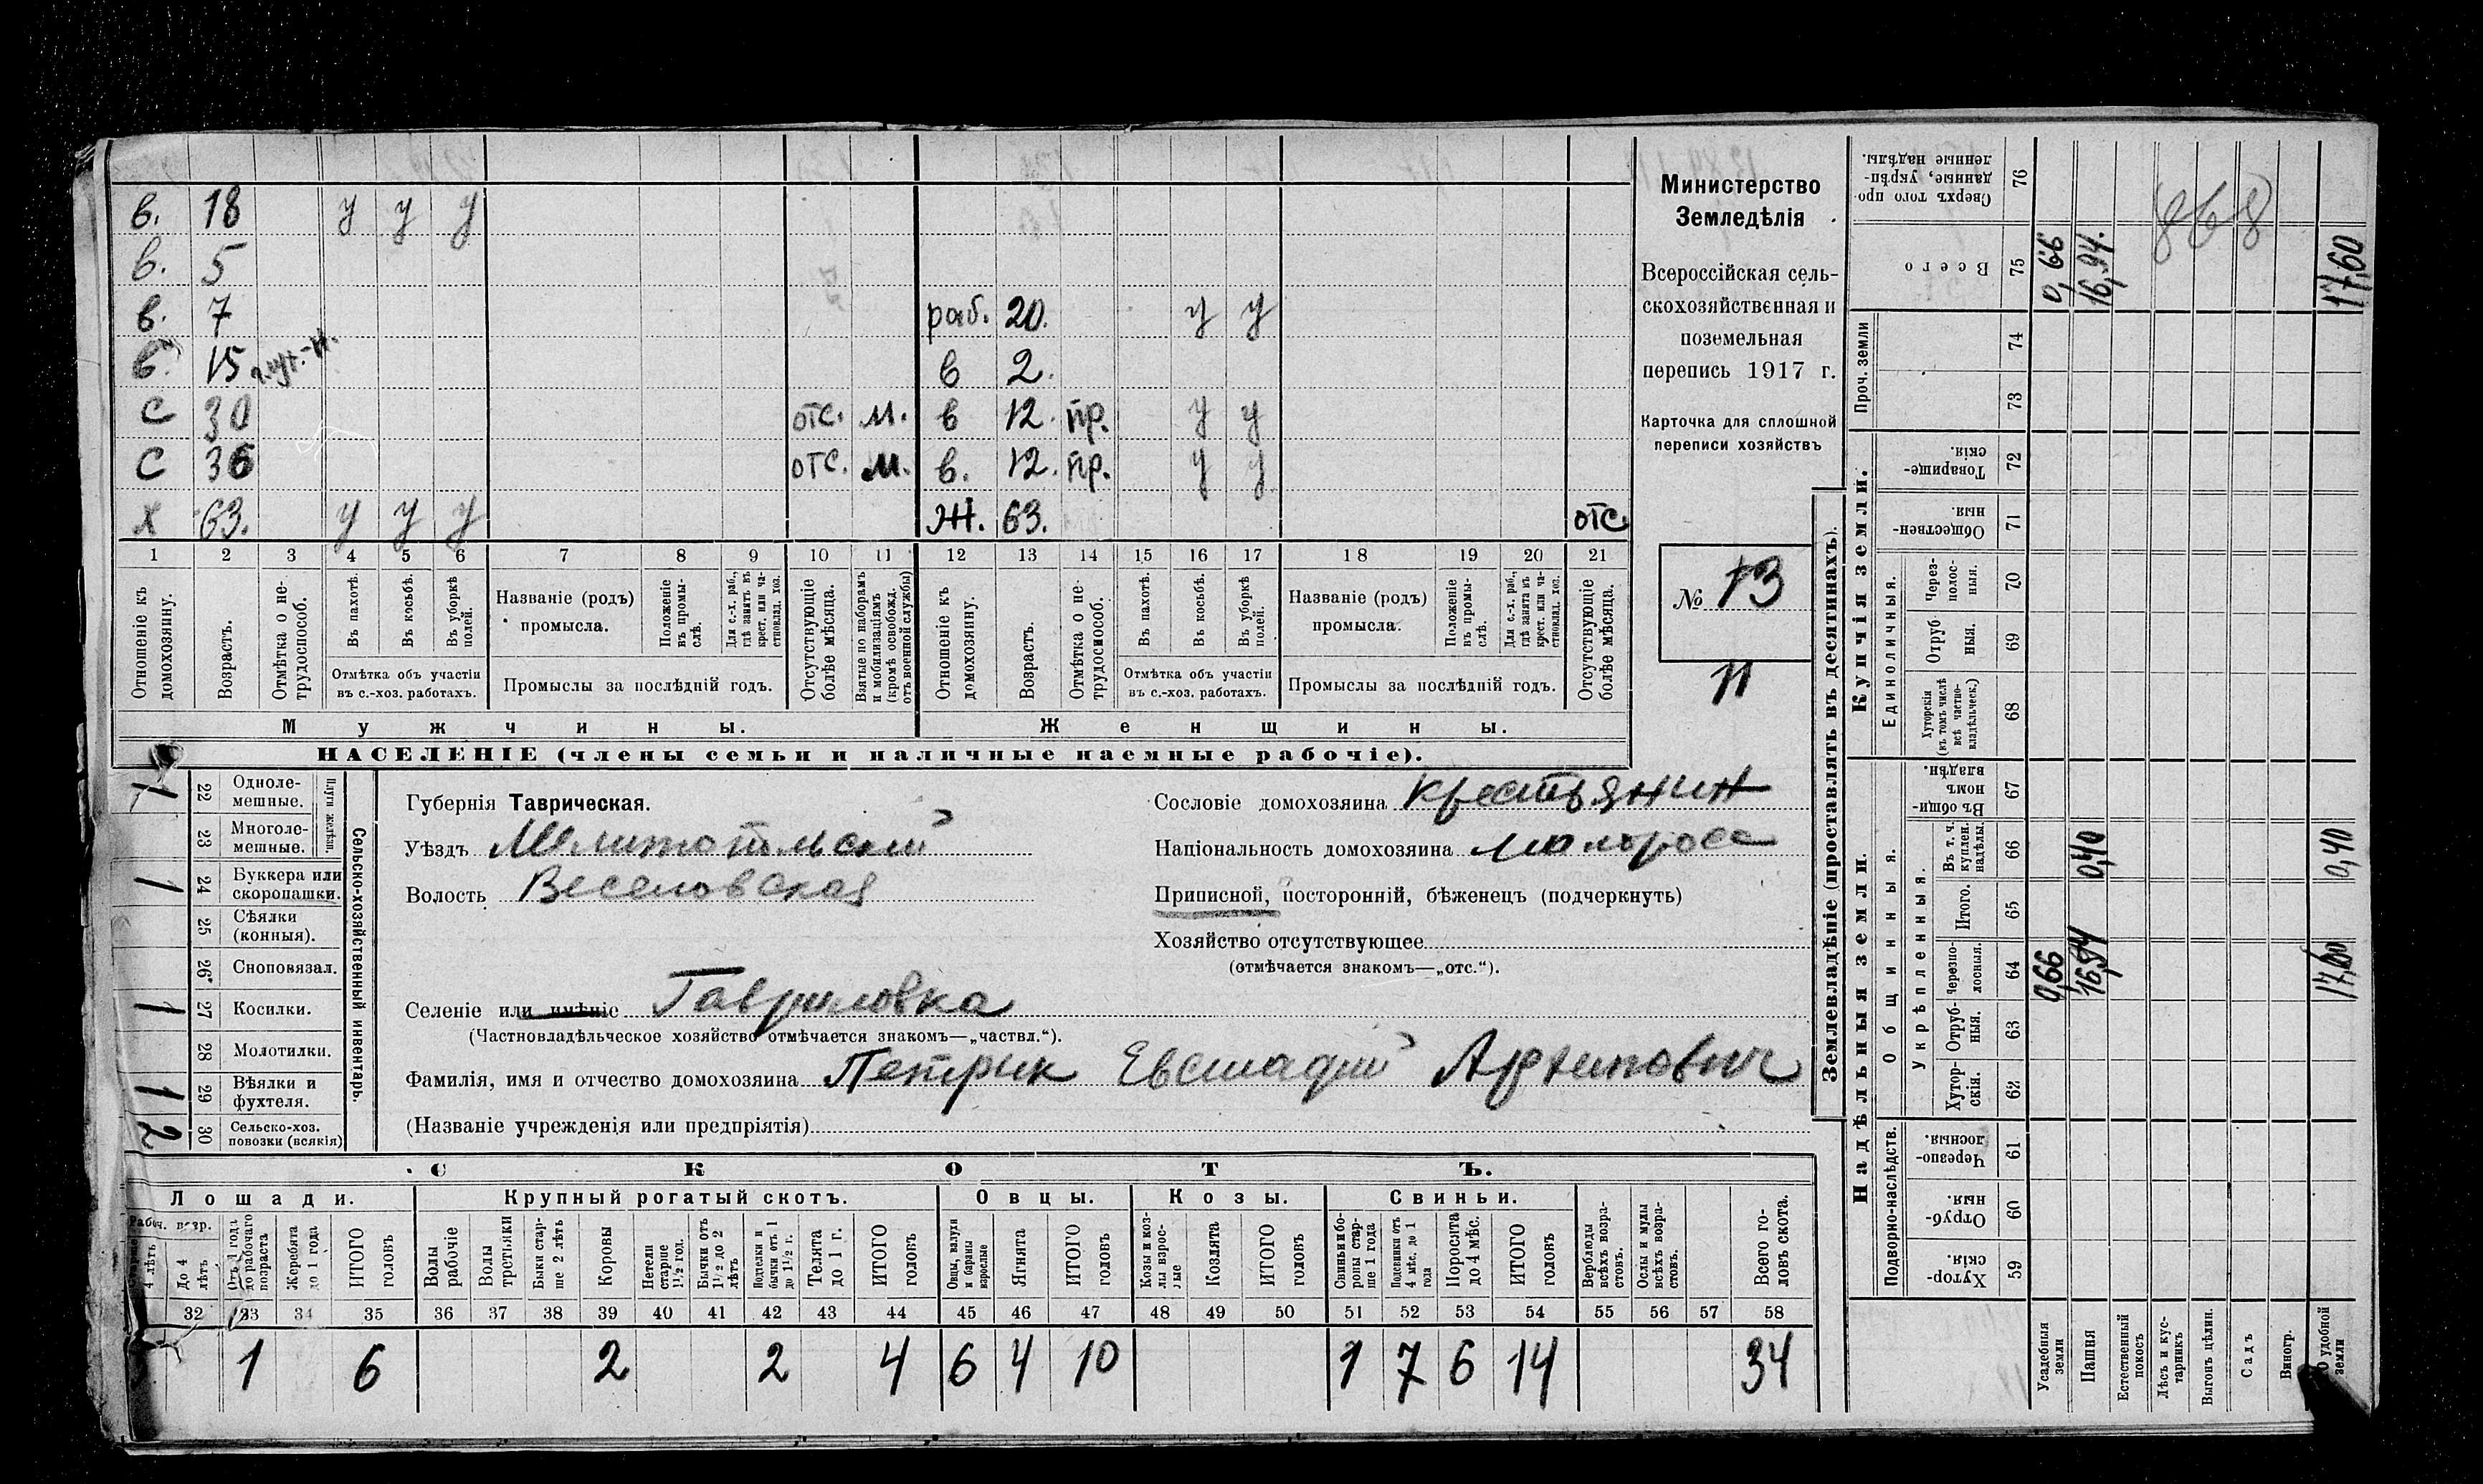 в. 18 у у у
в. 5
в. 7 раб. 20. у у
в 15 в 2.
с 30 отс. м. в 12. пр. у у
с 36 отс. м. в. 12. пр. у у
х 63. у у у Ж. 63. отс.
1 2 3 4 5 6 7 8 9 10 11 12 13 14 15 16 17 18 19 20 21
Отношеніе къ домохозяину.
Возрастъ.
Отмѣтка о не-трудоспособ.
Въ пахотѣ.
Въ косьбѣ.
Въ уборкѣ полей.
Отмѣтка объ участіи
въ с.-хоз. работахъ.
Названіе (родъ)
промысла.
Положеніе въ промы-слѣ.
Для с.-х. раб., гдѣ занятъ въ крест. или ча-стновлад. хоз.
Промыслы за послѣдній годъ.
Отсутствующіе болѣе мѣсяца.
Взятые по наборамъ и мобилизаціямъ (кромѣ освобожд. отъ военной службы)
Отношеніе къ домохозяину.
Возрастъ.
Отмѣтка о не-трудоспособ.
Въ пахотѣ.
Въ косьбѣ.
Въ уборкѣ полей.
Отмѣтка объ участіи
въ с.-хоз. работахъ.
Названіе (родъ)
промысла.
Положеніе въ промы-слѣ.
Для с.-х. раб., гдѣ занята въ крест. или ча-стновлад. хоз.
Промыслы за послѣдній годъ.
Отсутствующіе болѣе мѣсяца.
Мужчины. Женщины.
НАСЕЛЕНІЕ (члены семьи и наличные наемные рабочіе).
Министерство
Земледѣлія
Всероссійская сель-
скохозяйственная и
поземельная
перепись 1917 г.
Карточка для сплошной
переписи хозяйствъ
№ 13
11
Сельско-хозяйственный инвентарь.
Плуги желѣзн.
1 22 Одноле-мешные.
23 Многоле-мешные.
1 24 Буккера или скоропашки.
25 Сѣялки (конныя).
26 Сноповязал.
1 27 Косилки.
28 Молотилки.
1 29 Вѣялки и фухтеля.
2 30 Сельско-хоз. повозки (всякія)
Губернія Таврическая.
Уѣздъ Мелитопольскій
Волость Веселовская
Сословіе домохозяина крестьянин
Національность домохозяина малоросс
Приписной, посторонній, бѣженецъ (подчеркнуть)
Хозяйство отсутствующее
(отмѣчается знакомъ—„отс.“).
Селеніе или имѣніе Гавриловка
(Частновладѣльческое хозяйство отмѣчается знакомъ—„частвл.“).
Фамилія, имя и отчество домохозяина Петрик Архипович
(Названіе учрежденія или предпріятія)
СКОТЪ.
Лошади. Крупный рогатый скотъ. Овцы. Козы. Свиньи.
Рабоч. возр.
4 лѣтъ
До 4 лѣтъ
Отъ 1 года до рабочаго возраста
Жеребята до 1 года
ИТОГО головъ
Волы рабочіе
Волы третьяки
Быки стар-ше 2 лѣтъ
Коровы
Нетели старше 1½ год.
Бычки отъ 1½ до 2 лѣтъ
Подтелки и бычки отъ 1 до 1½ г.
Телята до 1 г.
ИТОГО головъ
Овцы, валухи и бараны взрослые
Ягнята
ИТОГО головъ
Козы и коз-лы взрос-лые
Козлята
ИТОГО головъ
Свиньи и бо-ровы стар-ше 1 года
Подсвинки отъ 4 мѣс. до 1 года
Поросята до 4 мѣс.
ИТОГО головъ
Верблюды всѣхъ возра-стовъ.
Ослы и мулы всѣхъ возра-стовъ.
Всего го-ловъ скота.
32 33 34 35 36 37 38 39 40 41 42 43 44 45 46 47 48 49 50 51 52 53 54 55 56 57 58
1 6 2 2 4 6 4 10 1 7 6 14 34
Землевладѣніе (проставлять въ десятинахъ).
Купчія земли.
Надѣльныя земли.
Проч. земли
Единоличныя.
Общинныя.
Укрѣпленныя.
Подворно-наслѣдств.
Сверхъ того про-данные, укрѣп-ленные надѣлы. 76
Всего 75 0,66 16,94. 17,60
868
74
73
Товарище-скія. 72
Обществен-ныя. 71
Через-полос-ныя. 70
Отруб-ныя. 69
Хуторскія (въ томъ числѣ всѣ частно-владѣльческ.) 68
Въ общи-номъ владѣн. 67
Въ т. ч. куплен. надѣлы. 66 0,40 0,40
Итого. 65
Черезпо-лосныя. 64 0,66 16,94 17,60
Отруб-ныя. 63
Хутор-скія. 62
Черезпо-лосныя. 61
Отруб-ныя. 60
Хутор-скія. 59
Усадебныя земли
Пашня
Естественный покосъ
Лѣсъ и кус-тарникъ
Выгонъ цѣлин.
Садъ
Виногр.
удобной земли